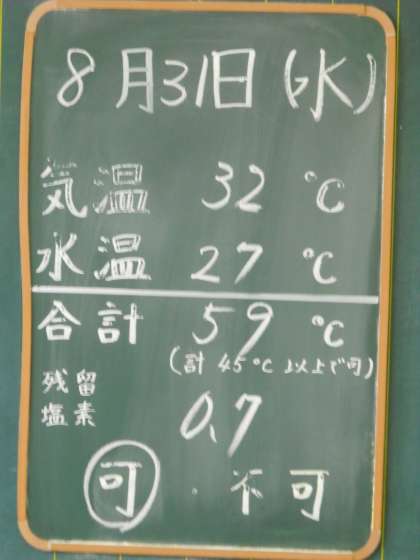 8月31日(水)
気温 32 ℃
水温 27 ℃
合計 59 ℃
(計 45℃ 以上で可)
残留
塩素 0.7
可・不可